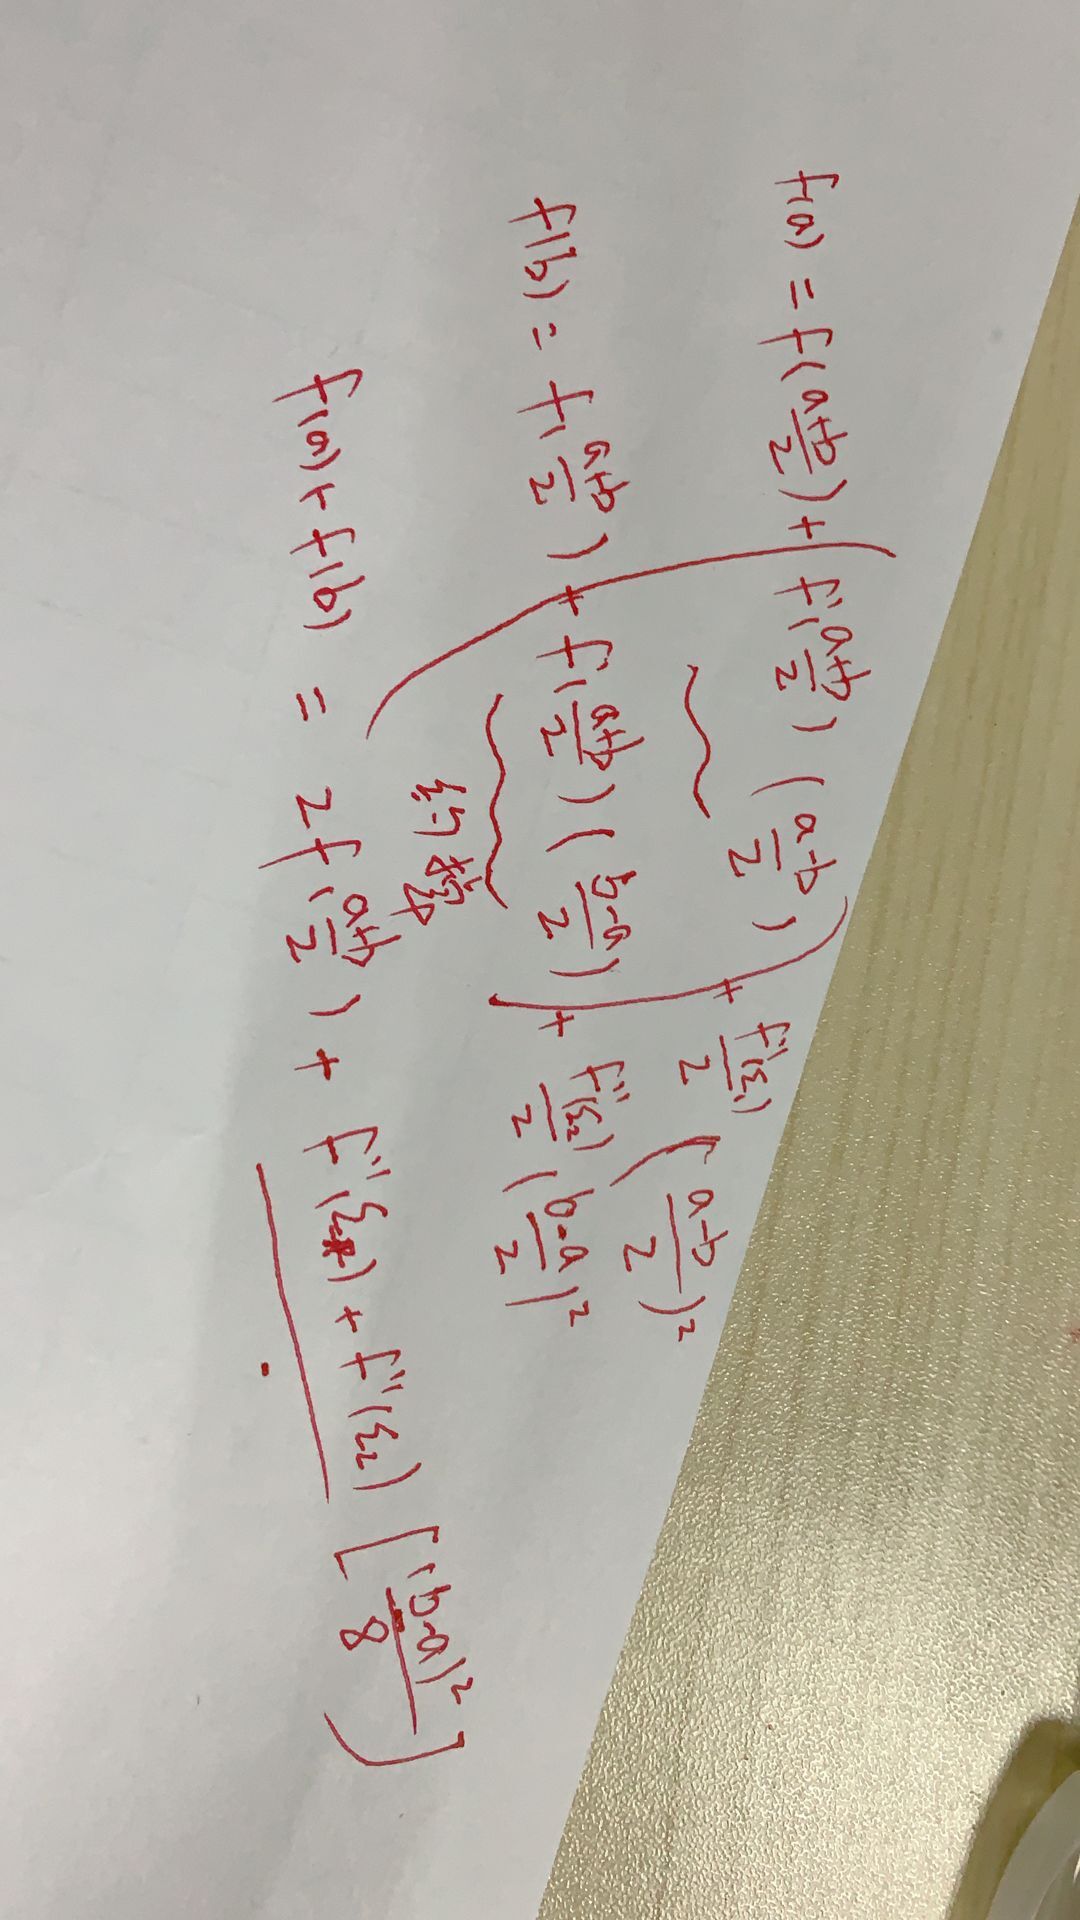 f(a) = f(\frac{a+b}{2}) + f'(\frac{a+b}{2}) (\frac{a-b}{2}) + \frac{f''(ξ_1)}{2} (\frac{a-b}{2})^2
f(b) = f(\frac{a+b}{2}) + f'(\frac{a+b}{2}) (\frac{b-a}{2}) + \frac{f''(ξ_2)}{2} (\frac{b-a}{2})^2
约掉
f(a) + f(b) = 2f(\frac{a+b}{2}) + f''(ξ) + f''(ξ_2) [\frac{(b-a)^2}{8}]